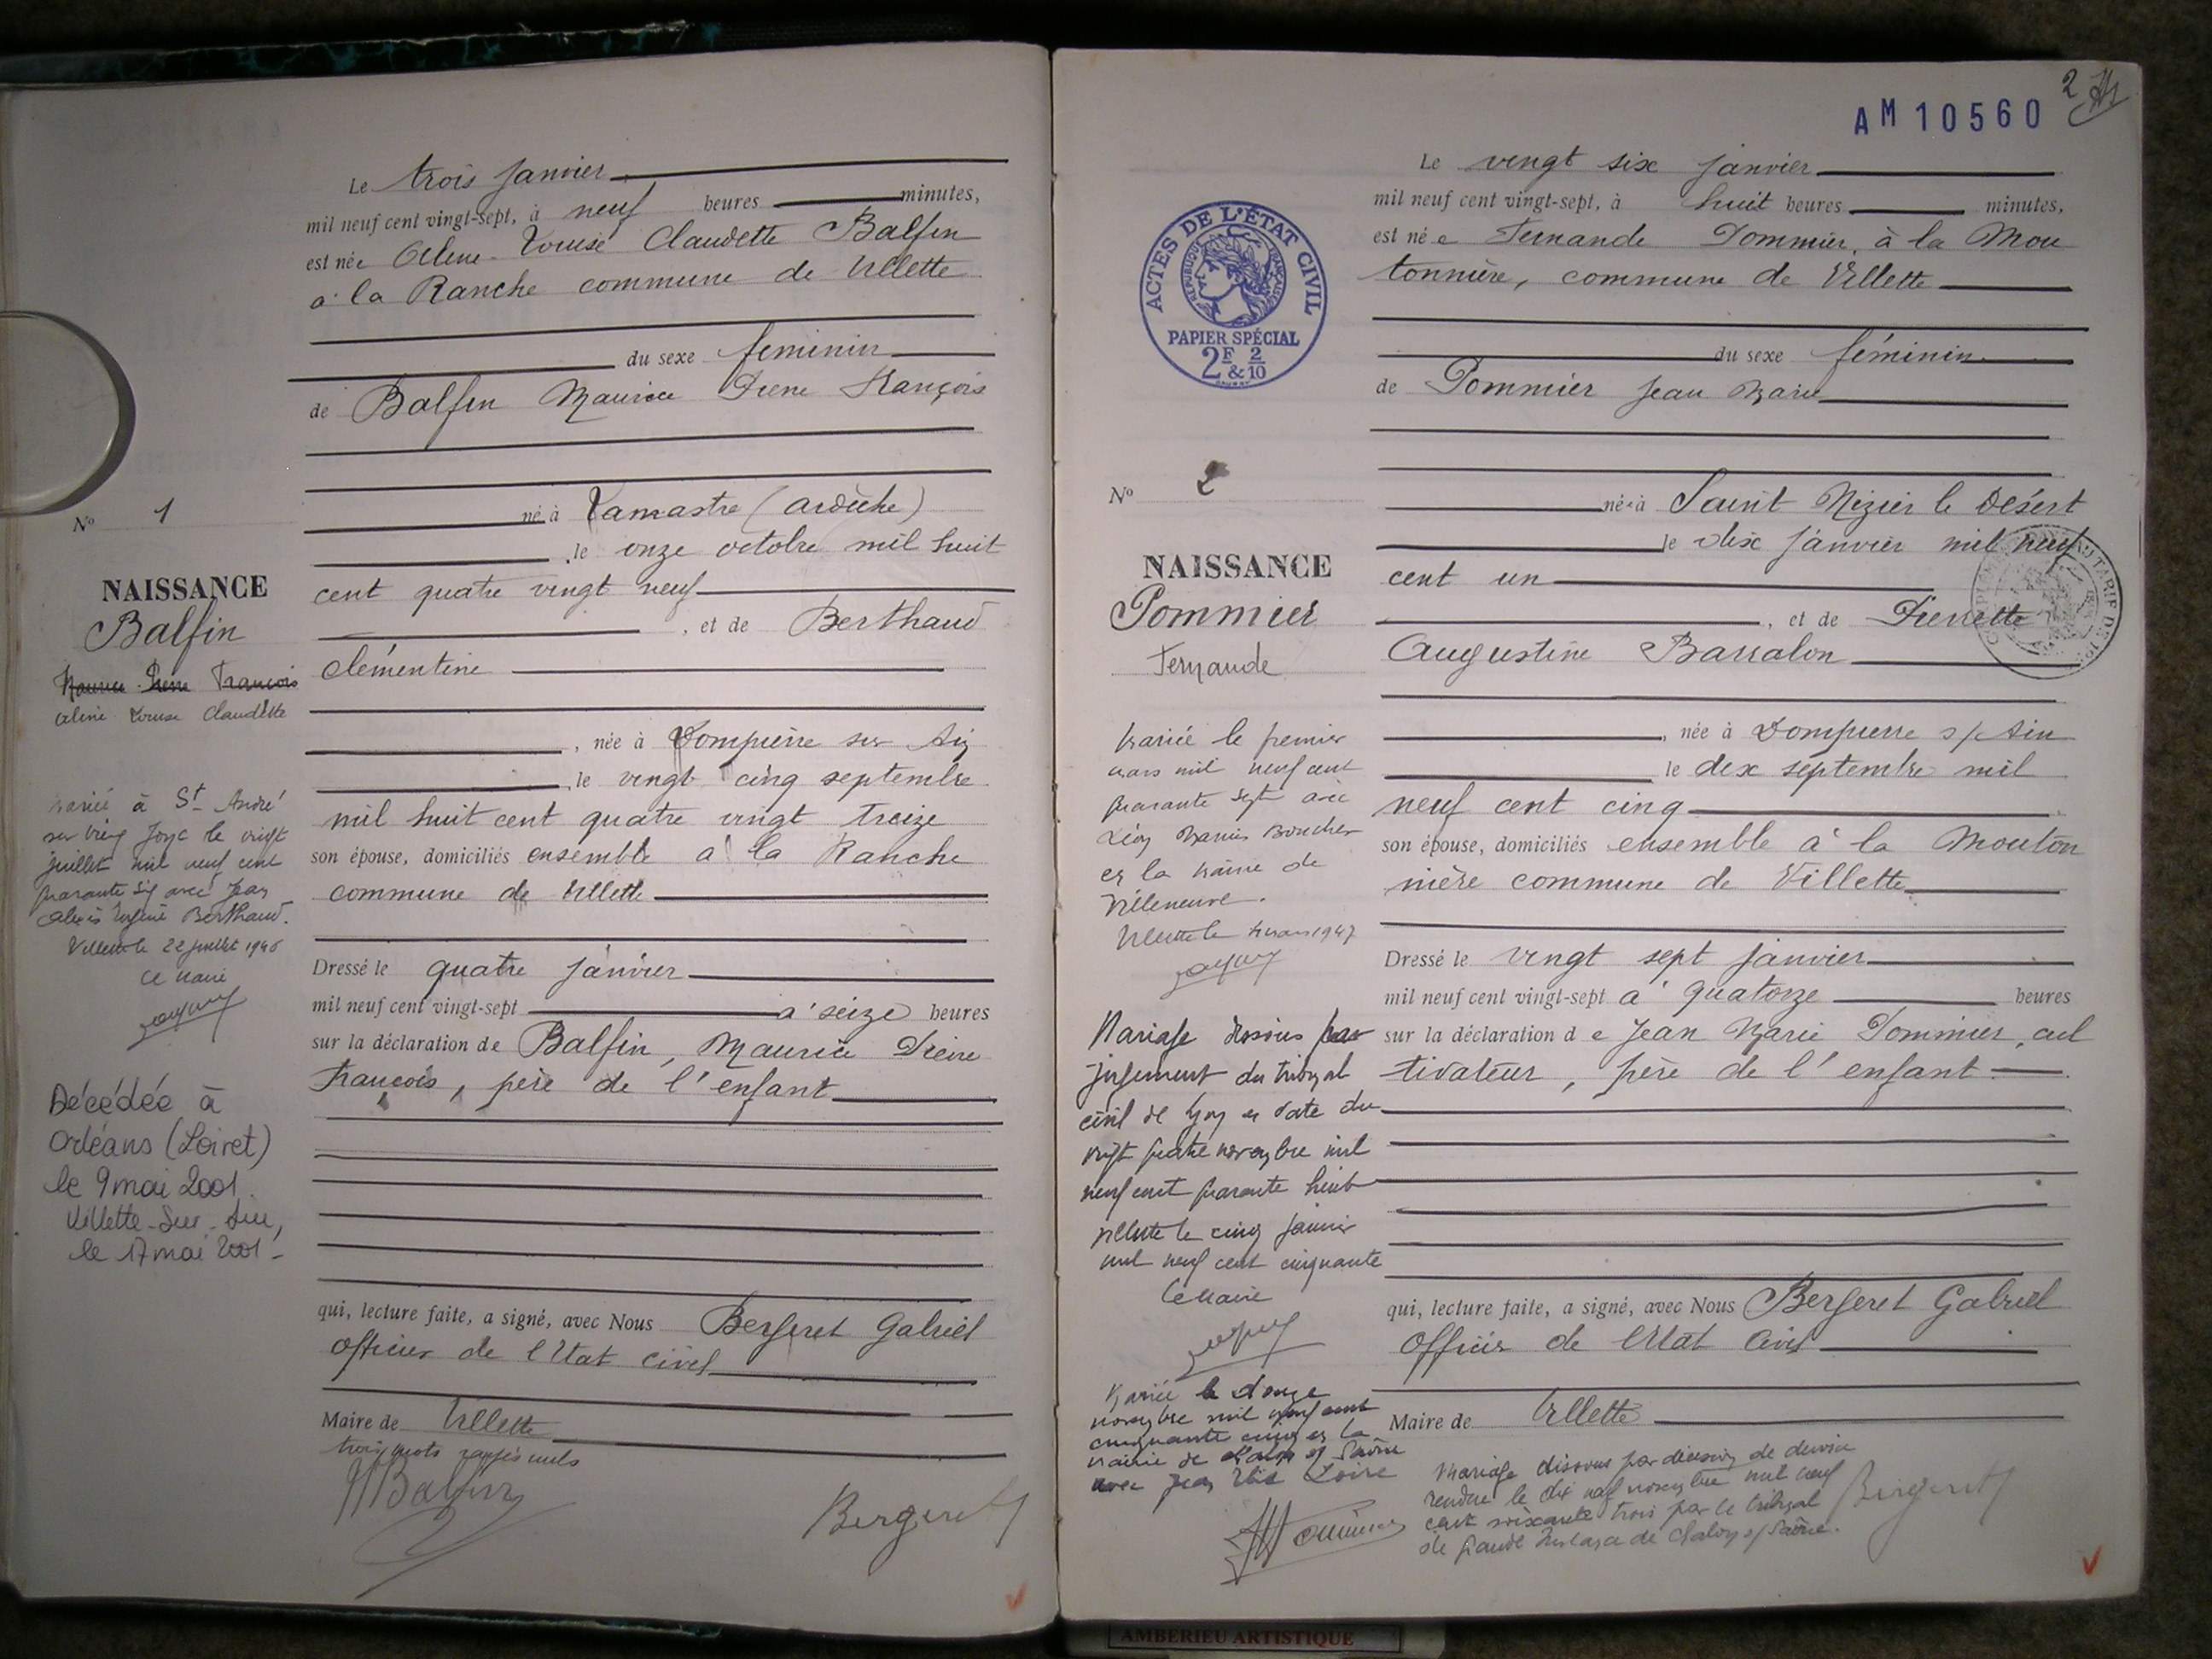 Le trois janvier
mil neuf cent vingt-sept, à neuf heures minutes,
est née Aline Louise Claudette Balfin
à la Ranche commune de Villette
du sexe féminin
de Balfin Maurice Pierre François
né à Lamastre (Ardèche)
le onze octobre mil huit
cent quatre vingt neuf
, et de Berthaud
Clémentine
, née à Dompierre sur Ain
, le vingt cinq septembre
mil huit cent quatre vingt treize
son épouse, domiciliés ensemble à la Ranche
commune de Villette
Dressé le quatre janvier
mil neuf cent vingt-sept à seize heures
sur la déclaration de Balfin, Maurice Pierre
François, père de l'enfant
qui, lecture faite, a signé, avec Nous Bergeret Gabriel
officier de l'Etat civil
Maire de Villette
trois mots rayés nuls
Balfin
Bergeret
N° 1
NAISSANCE
Balfin
Maurice Pierre François
Aline Louise Claudette
Mariée à St André
sur Vieux Jonc le vingt
juillet mil neuf cent
quarante six avec Jean
Alexis Eugène Berthaud.
Villette le 22 juillet 1946
Le Maire
Décédée à
Orléans (Loiret)
le 9 mai 2001.
Villette-sur-Ain,
le 17 mai 2001
AM 10560
2
ACTES DE L'ÉTAT CIVIL
RÉPUBLIQUE FRANÇAISE
PAPIER SPÉCIAL
2F & 2/10
Le vingt six janvier
mil neuf cent vingt-sept, à huit heures minutes,
est née Fernande Pommier, à la Mou
tonnière, commune de Villette
du sexe féminin
de Pommier Jean Marie
né à Saint Nizier le Désert
le dix janvier mil neuf
cent un
, et de Pierrette
Augustine Barralon
, née à Dompierre s/ Ain
le dix septembre mil
neuf cent cinq
son épouse, domiciliés ensemble à la Mouton
nière commune de Villette
Dressé le vingt sept janvier
mil neuf cent vingt-sept à quatorze heures
sur la déclaration de Jean Marie Pommier, cul
tivateur, père de l'enfant
qui, lecture faite, a signé, avec Nous Bergeret Gabriel
Officier de l'Etat Civil
Maire de Villette
Bergeret
N° 2
NAISSANCE
Pommier
Fernande
Mariée le premier
mars mil neuf cent
quarante sept avec
Léon Marius Boucher
en la mairie de
Villeneuve.
Villette le mars 1947
Mariage dissous par
jugement du tribunal
civil de Lyon en date du
vingt quatre novembre mil
neuf cent quarante huit
Villette le cinq janvier
mil neuf cent cinquante
Le Maire
Mariée le douze
novembre mil neuf cent
cinquante cinq en la
mairie de s/ Saône
avec Jean Loire
Pommier
Mariage dissous par décision de divorce
rendue le dix neuf novembre mil neuf
cent soixante trois par le tribunal
de Grande Instance de Chalon s/ Saône.
AMBERIEU ARTISTIQUE